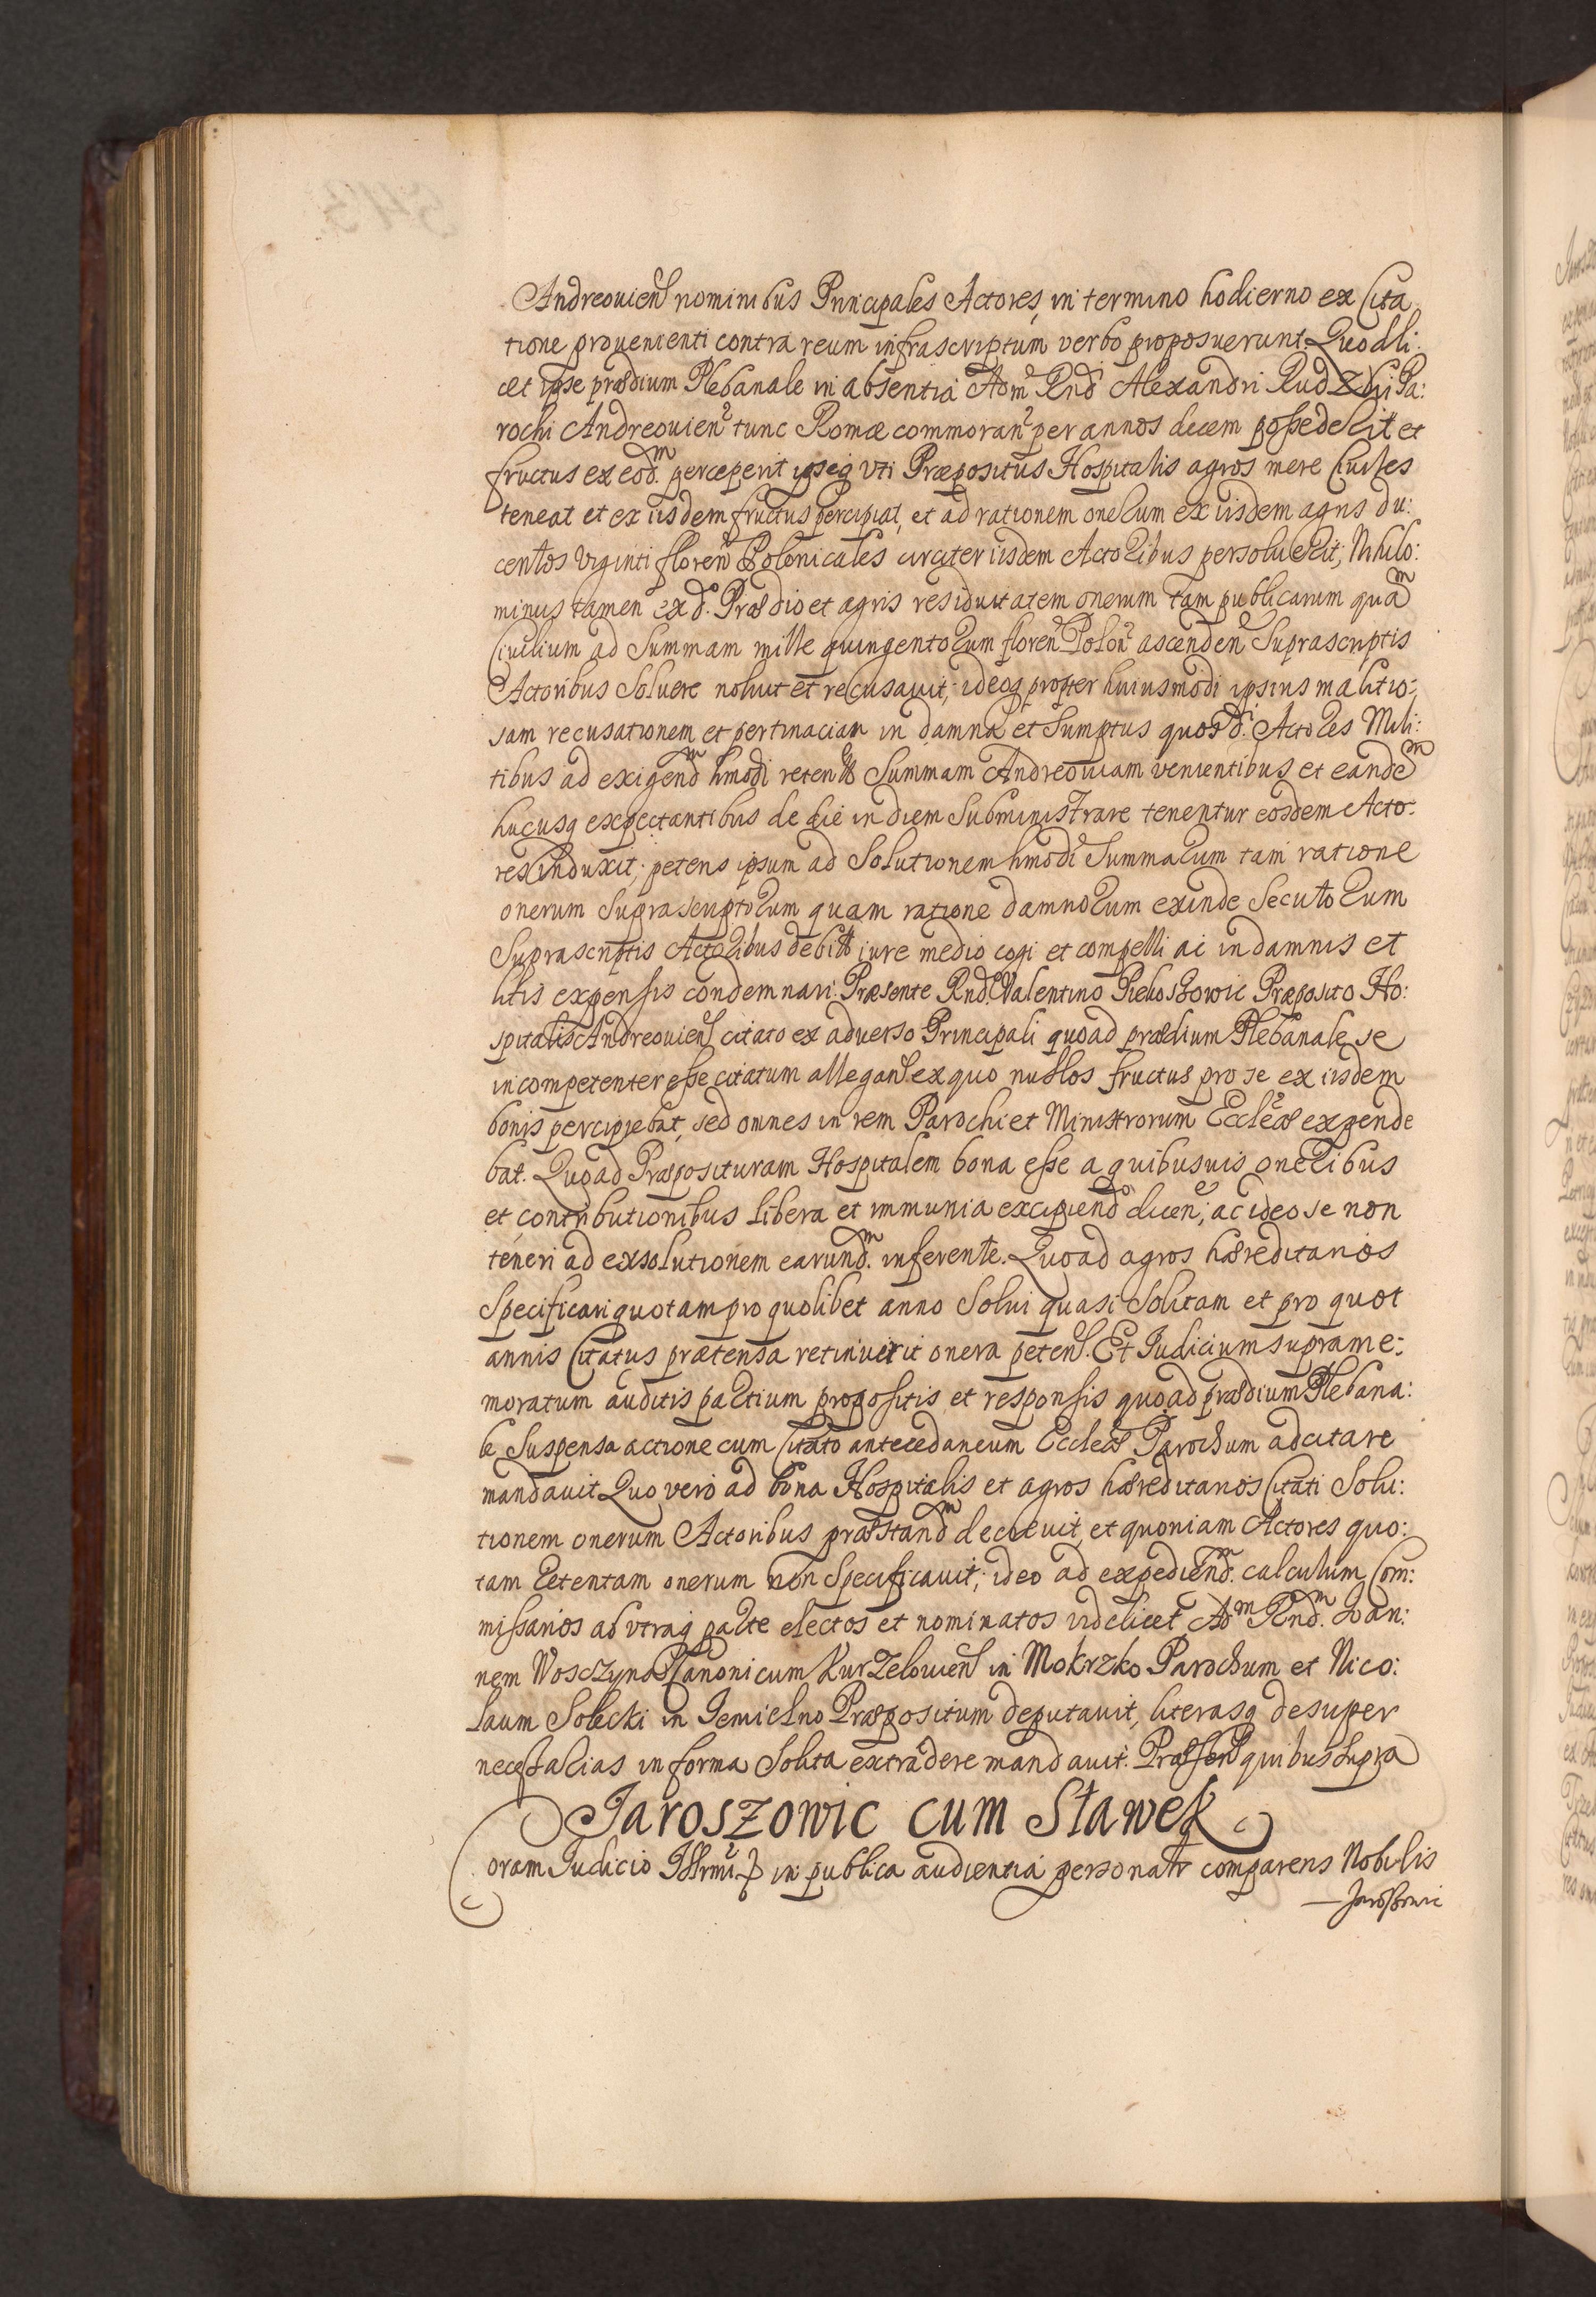 Andreouien nominibus Principales Actores, in termino hodierno ex Cita
tione prouenienti contra reum infrascriptum verbo proposuerunt Quod li:
cet ipse prædium Plebanale in absentia Adm Rnd Alexandri Rudzki Pa:
rochi Andreouien tunc Romæ commoran per annos decem possederit et
fructus ex eod.m perceperit ipseq vti Præpositus Hospitalis agros mere Ciuiles
teneat et ex iisdem fructus percipiat, et ad rationem onerum ex iisdem agris du:
centos viginti floren Polonicales circiter iisdem Actoribus persoluerit, Nihilo:
minus tamen ex d. Prædio et agris residuitatem onerum tam publicarum quam
Ciuilium ad Summam mille quingentorum floren Polon ascenden Suprascriptis
Actoribus Soluere noluit et recusauit, ideoq propter huiusmodi ipsius malitio:
sam recusationem et pertinaciam in damna et Sumptus quos d. Actores Mili:
tibus ad exigend.m hmodi retent Summam Andreouiam venientibus et eandem
hucusq expectantibus de die in diem Subministrare tenentur eosdem Acto:
res induxit; petens ipsum ad Solutionem hmodi Summarum tam ratione
onerum Suprascriptorum quam ratione damnorum exinde Secutorum
Suprascriptis Actoribus debitt iure medio cogi et compelli ac in damnis et
litis expensis condemnari. Præsente Rnd. Valentino Præposito Ho:
spitalis Andreouien citato ex aduerso Principali quoad prædium Plebanale se
incompetenter esse citatum allegan ex quo nullos fructus pro se ex iisdem
bonis percipiebat, sed omnes in rem Parochi et Ministrorum Eccleæ expende
bat. Quoad Præposituram Hospitalem bona esse a quibusuis oneribus
et contributionibus libera et immunia excipiend dicen, ac ideo se non
teneri ad exsolutionem earund.m inferente. Quoad agros hæreditarios
Specificari quotam pro quolibet anno Solui quasi Solitam et pro quot
annis Citatus prætensa retinuerit onera peten. Et Iudicium suprame:
moratum auditis partium propositis et responsis quoad prædium Plebana:
le Suspensa actione cum Citato antecedaneum Eccleæ Parochum adcitare
mandauit Quo vero ad bona Hospitalis et agros hæreditarios Citati Solu:
tionem onerum Actoribus præstand.m decreuit, et quoniam Actores quo:
tam retentam onerum non Specificauit; ideo ad expediend.m calculum Com:
missarios ab vtraq parte electos et nominatos videlicet Adm Rnd.m Ioan:
nem Canonicum Kurzelouien in Mokrzko Parochum et Nico:
laum Solecki in Iemielno Præpositum deputauit, literasq desuper
necessarias in forma Solita extradere mandauit. Præsen quibus supra
Iaroszowic cum Sławek
Coram Iudicio Illrmi in publica audientia personatr comparens Nobilis
—Iaroszowic